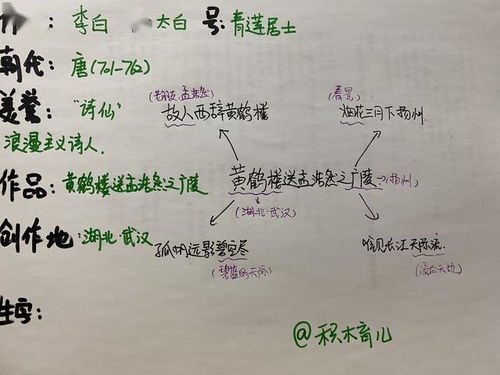 作 : 李白 太白 号: 青莲居士
朝代: 唐(701-762)
美誉: "诗仙"
浪漫主义诗人.
(老朋友,孟浩然)
故人西辞黄鹤楼
(春景)
烟花三月下扬州.
作品: 黄鹤楼送孟浩然之广陵
黄鹤楼送孟浩然之广陵→(扬州)
(湖北·武汉)
创作地: 湖北·武汉
孤帆远影碧空尽
(碧蓝的天际)
唯见长江天际流.
(流向天边)
生字:
@积木育儿